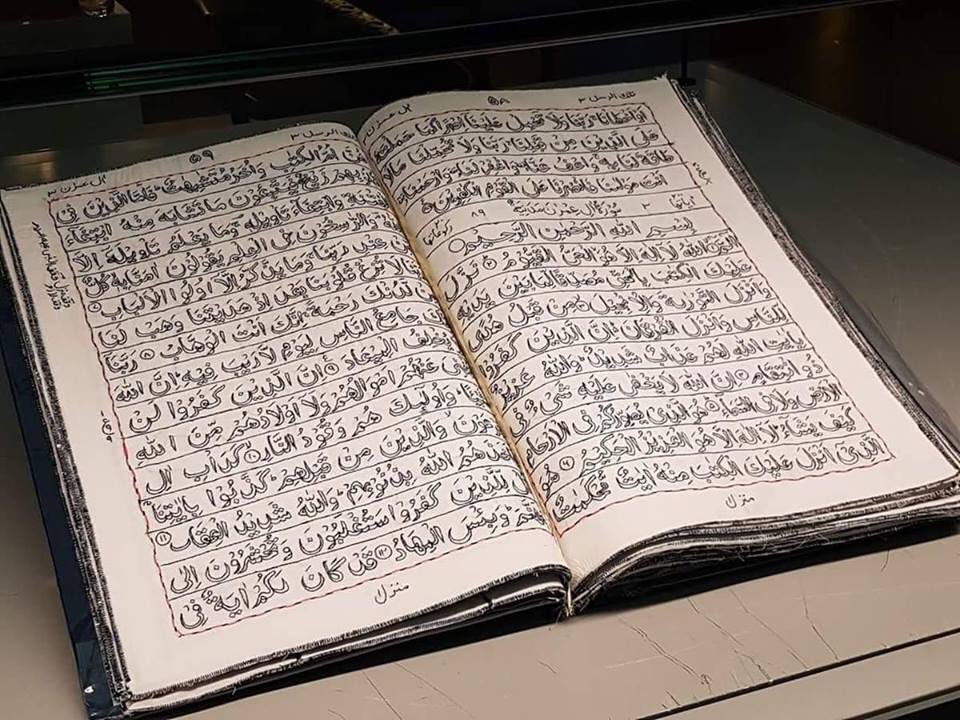 تلك الرسل ٣
٥٨
اٰل عمرٰن ٣
اَوْ اَخْطَاْنَا رَبَّنَا وَلَا تَحْمِلْ عَلَيْنَا اِصْرًا كَمَا حَمَلْتَهٗ
عَلَى الَّذِيْنَ مِنْ قَبْلِنَا رَبَّنَا وَلَا تُحَمِّلْنَا مَا لَا
طَاقَةَ لَنَا بِهٖ وَاعْفُ عَنَّا وَاغْفِرْ لَنَا وَارْحَمْنَا
اَنْتَ مَوْلٰىنَا فَانْصُرْنَا عَلَى الْقَوْمِ الْكٰفِرِيْنَ
٣ سُوْرَةُ اٰلِ عِمْرٰنَ مَدَنِيَّةٌ ٨٩
بِسْمِ اللّٰهِ الرَّحْمٰنِ الرَّحِيْمِ
الٓمّٓ اللّٰهُ لَا اِلٰهَ اِلَّا هُوَ الْحَيُّ الْقَيُّوْمُ ٢ نَزَّلَ
عَلَيْكَ الْكِتٰبَ بِالْحَقِّ مُصَدِّقًا لِّمَا بَيْنَ يَدَيْهِ
وَاَنْزَلَ التَّوْرٰىةَ وَالْاِنْجِيْلَ مِنْ قَبْلُ هُدًى
لِّلنَّاسِ وَاَنْزَلَ الْفُرْقَانَ اِنَّ الَّذِيْنَ كَفَرُوْا
بِاٰيٰتِ اللّٰهِ لَهُمْ عَذَابٌ شَدِيْدٌ وَاللّٰهُ عَزِيْزٌ
ذُو انْتِقَامٍ اِنَّ اللّٰهَ لَا يَخْفٰى عَلَيْهِ شَيْءٌ فِى
الْاَرْضِ وَلَا فِى السَّمَآءِ هُوَ الَّذِيْ يُصَوِّرُكُمْ فِى الْاَرْحَامِ
كَيْفَ يَشَآءُ لَا اِلٰهَ اِلَّا هُوَ الْعَزِيْزُ الْحَكِيْمُ ٦ هُوَ
الَّذِيْ اَنْزَلَ عَلَيْكَ الْكِتٰبَ مِنْهُ اٰيٰتٌ مُّحْكَمٰتٌ
منزل
تلك الرسل ٣
٥٩
اٰل عمرٰن ٣
هُنَّ اُمُّ الْكِتٰبِ وَاُخَرُ مُتَشٰبِهٰتٌ فَاَمَّا الَّذِيْنَ فِيْ
قُلُوْبِهِمْ زَيْغٌ فَيَتَّبِعُوْنَ مَا تَشَابَهَ مِنْهُ ابْتِغَآءَ
الْفِتْنَةِ وَابْتِغَآءَ تَاْوِيْلِهٖ وَمَا يَعْلَمُ تَاْوِيْلَهٗ اِلَّا
اللّٰهُ وَالرّٰسِخُوْنَ فِى الْعِلْمِ يَقُوْلُوْنَ اٰمَنَّا بِهٖ كُلٌّ
مِّنْ عِنْدِ رَبِّنَا وَمَا يَذَّكَّرُ اِلَّا اُولُوا الْاَلْبَابِ
رَبَّنَا لَا تُزِغْ قُلُوْبَنَا بَعْدَ اِذْ هَدَيْتَنَا وَهَبْ لَنَا
مِنْ لَّدُنْكَ رَحْمَةً اِنَّكَ اَنْتَ الْوَهَّابُ ٨ رَبَّنَا
اِنَّكَ جَامِعُ النَّاسِ لِيَوْمٍ لَّا رَيْبَ فِيْهِ اِنَّ اللّٰهَ
لَا يُخْلِفُ الْمِيْعَادَ ٩ اِنَّ الَّذِيْنَ كَفَرُوْا لَنْ
تُغْنِيَ عَنْهُمْ اَمْوَالُهُمْ وَلَا اَوْلَادُهُمْ مِّنَ اللّٰهِ
شَيْـًٔا وَاُولٰٓئِكَ هُمْ وَقُوْدُ النَّارِ ١٠ كَدَاْبِ اٰلِ
فِرْعَوْنَ وَالَّذِيْنَ مِنْ قَبْلِهِمْ كَذَّبُوْا بِاٰيٰتِنَا
فَاَخَذَهُمُ اللّٰهُ بِذُنُوْبِهِمْ وَاللّٰهُ شَدِيْدُ الْعِقَابِ ١١
قُلْ لِّلَّذِيْنَ كَفَرُوْا سَتُغْلَبُوْنَ وَتُحْشَرُوْنَ اِلٰى
جَهَنَّمَ وَبِئْسَ الْمِهَادُ ١٢ قَدْ كَانَ لَكُمْ اٰيَةٌ فِيْ
منزل